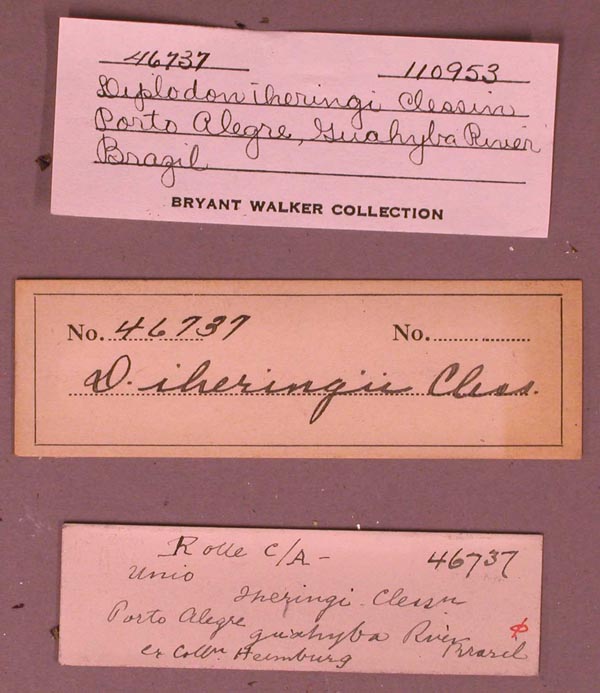 46737 110953
Diplodon iheringi Clessin
Porto Alegre, Guahyba River
Brazil
BRYANT WALKER COLLECTION
No. 46737 No.
D. iheringii Cless.
Rolle C/A -
46737
Unio
Iheringi Clessn
Porto Alegre
guahyba River
Brazil
ex Colln Heimburg